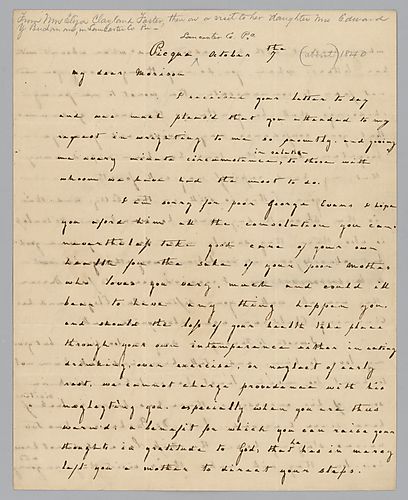 From Mrs Eliza Clayland Foster, then on a visit to her daughter Mrs Edward
Y Buchanan in Lancaster Co Pa
Lancaster Co Pa
Piqua October the 7 (about) 1840
my dear Morrison
I received your letter to day
and was much pleas'd that you attended to my
request in wrighting to me so promtly, and giving
in relation
me every minute circumstance, to those with
whoom we have had the most to do.
I am sorry for poor George Evans I hope
you aford him all the consolation you can.
neverthelass take good care of your own
health for the sake of your poor Mother
who loves you very much and would ill
bear to have any thing happen you.
and should the loss of your health take place
through your own intemperance either in eating
drinking, over exercise, or neglect of early
rest, we cannot charge providence with his
neglegting you. especially when you are thus
warned: a benefit for which you can raise your
thoughts in gratitude to God, that he has in mercy
left you a mother to direct your steps.